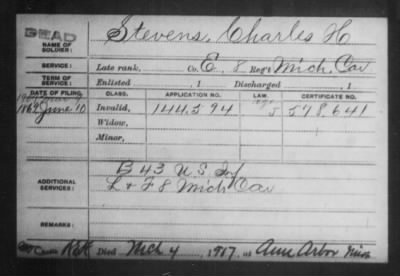 DEAD
Stevens, Charles H
NAME OF
SOLDIER:
SERVICE: Late rank, Co. E, 8 Reg't Mich. Cav
TERM OF
SERVICE: Enlisted , 1 Discharged , 1
DATE OF FILING. CLASS. APPLICATION NO. LAW. CERTIFICATE NO.
1869 June 10 Invalid, 144,594 578,641
Widow,
Minor,
ADDITIONAL
SERVICES:
B 43 U.S. Inf
L & F 8 Mich Cav
REMARKS:
Died Mch 4, 1917, at Ann Arbor Mich